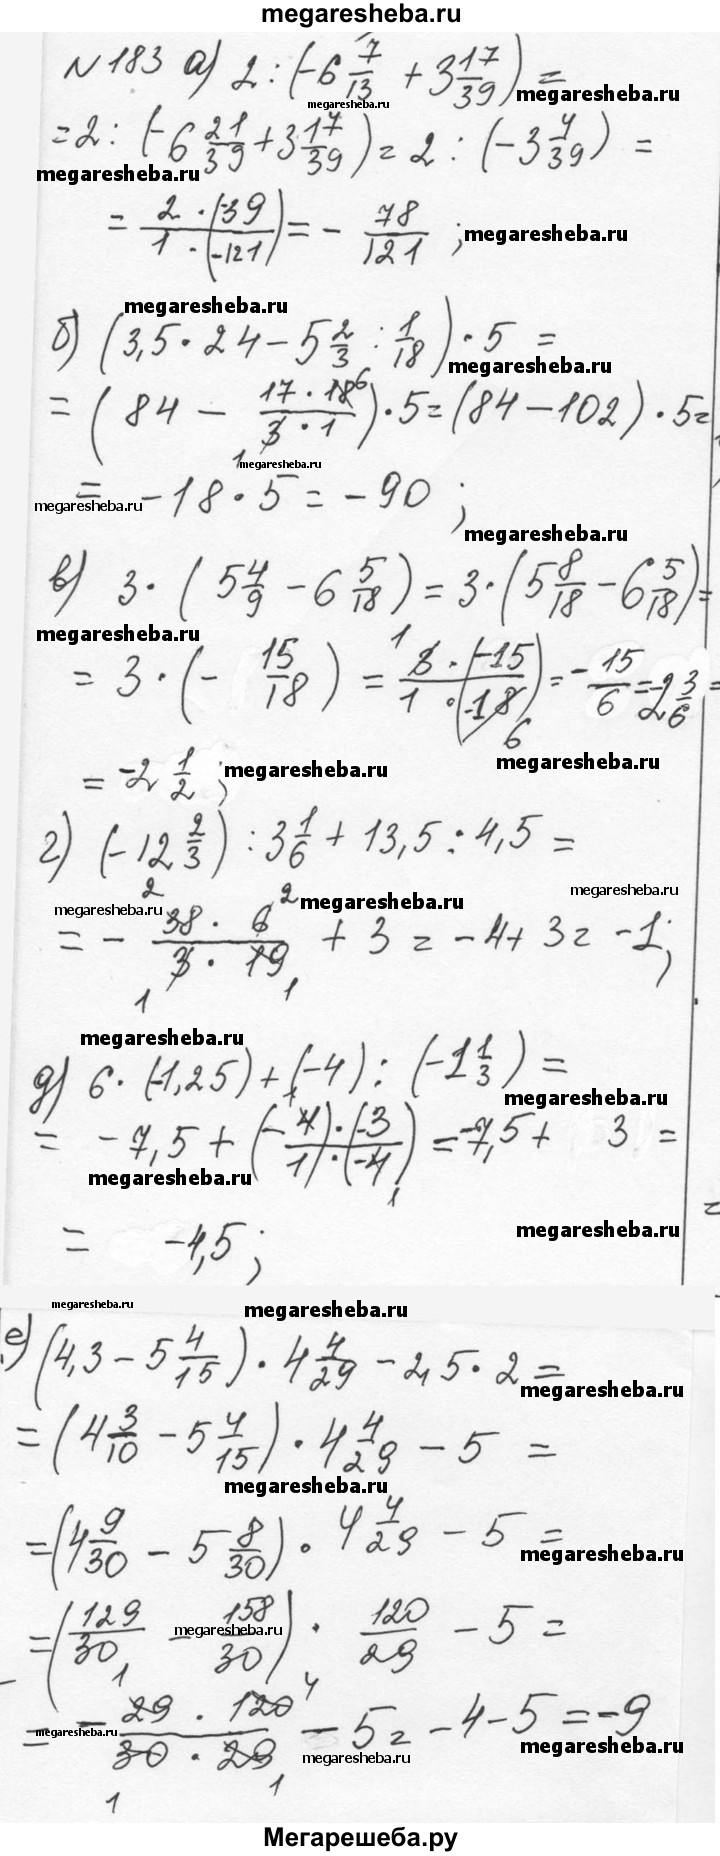 megaresheba.ru
№183 а) 2 : (-6 7/13 + 3 17/39) =
megaresheba.ru
megaresheba.ru
= 2 : (-6 21/39 + 3 17/39) = 2 : (-3 4/39) =
megaresheba.ru
= 2 · (39)/1 · (-121) = - 78/121 ;
megaresheba.ru
megaresheba.ru
б) (3,5 · 24 - 5 2/3 : 1/18) · 5 =
megaresheba.ru
= (84 - 17 · 18 6/3 · 1 1) · 5 = (84 - 102) · 5 =
megaresheba.ru
= -18 · 5 = -90 ;
megaresheba.ru
megaresheba.ru
в) 3 · (5 4/9 - 6 5/18) = 3 · (5 8/18 - 6 5/18) =
megaresheba.ru
= 3 · (- 15/18) = 1 3 · (-15)/1 · (-18) 6 = - 15/6 = -2 3/6 =
megaresheba.ru
= -2 1/2 ;
megaresheba.ru
г) (-12 2/3) : 3 1/6 + 13,5 : 4,5 =
megaresheba.ru
megaresheba.ru
megaresheba.ru
= - 2 38 · 6 2/1 3 · 19 1 + 3 = -4 + 3 = -1;
megaresheba.ru
д) 6 · (-1,25) + (-4) : (-1 1/3) =
megaresheba.ru
= -7,5 + (1 (-4) · (-3)/1) · (-4) 1) = -7,5 + 3 =
megaresheba.ru
= -4,5 ;
megaresheba.ru
megaresheba.ru
megaresheba.ru
е) (4,3 - 5 4/15) · 4 4/29 - 2,5 · 2 =
megaresheba.ru
= (4 3/10 - 5 4/15) · 4 4/29 - 5 =
megaresheba.ru
= (4 9/30 - 5 8/30) · 4 4/29 - 5 =
megaresheba.ru
= (129/30 - 158/30) · 120/29 - 5 =
megaresheba.ru
= - 1 29 · 120 4/1 30 · 29 1 - 5 = -4 - 5 = -9
megaresheba.ru
megaresheba.ru
megaresheba.ru
Мегарешеба.ру